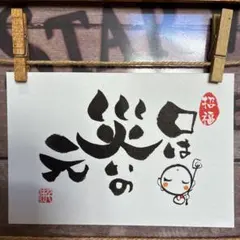 口は
災いの
元
招福